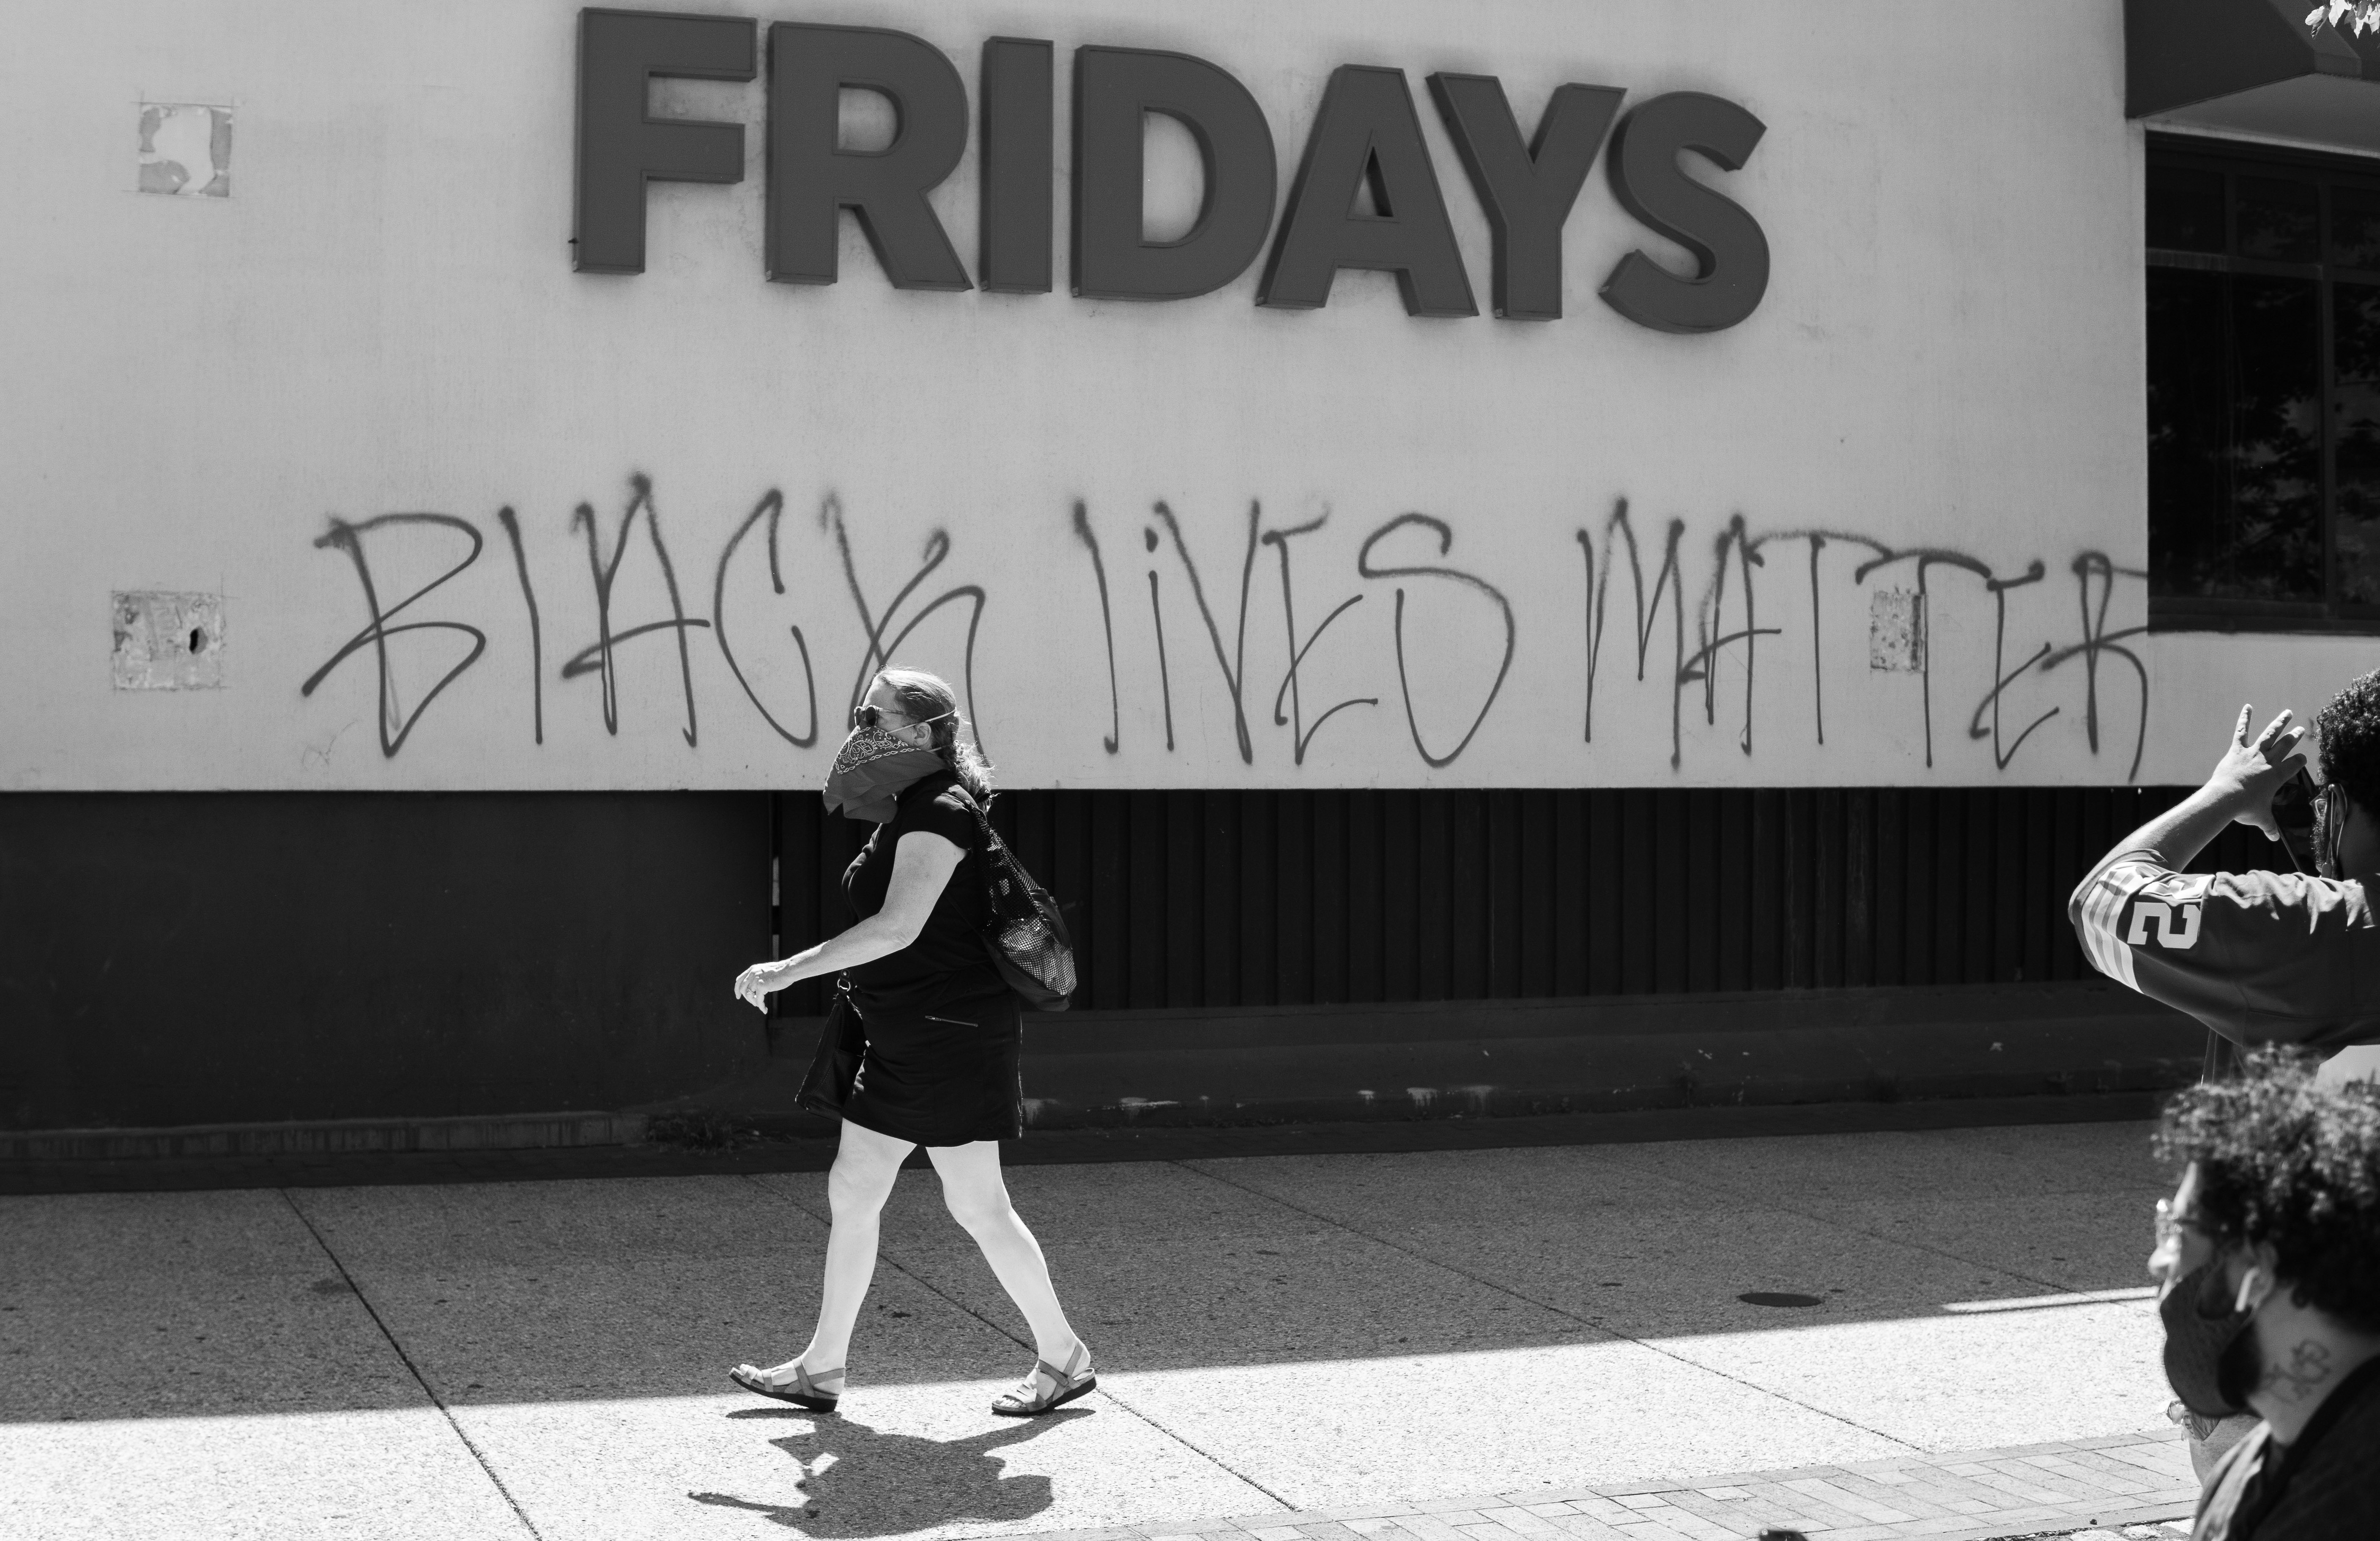 FRIDAYS
BLACK LiVES MATTER
2